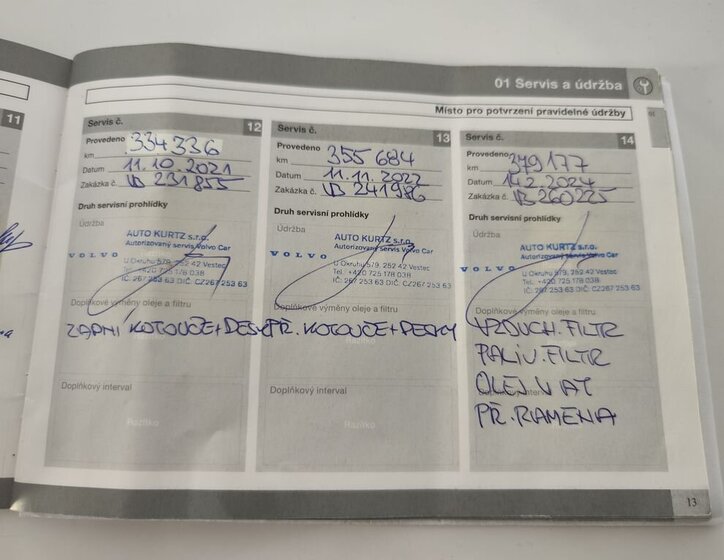 01 Servis a údržba
Místo pro potvrzení pravidelné údržby
11
Servis č. 12
Provedeno 334 336
km
Datum 11.10.2021
Zakázka č. VB 231855
Druh servisní prohlídky
Údržba
AUTO KURTZ s.r.o.
Autorizovaný servis Volvo Car
VOLVO
U Okruhu 579, 252 42 Vestec
Tel. +420 725 178 038
IČ: 267 253 63 DIČ: CZ267 253 63
Doplňkové výměny oleje a filtru
ZADNÍ KOTOUČE+DESKY
Doplňkový interval
Razítko
Servis č. 13
Provedeno 355 684
km
Datum 11.11.2022
Zakázka č. VB 241986
Druh servisní prohlídky
Údržba
AUTO KURTZ s.r.o.
Autorizovaný servis Volvo Car
VOLVO
U Okruhu 579, 252 42 Vestec
Tel. +420 725 178 038
IČ: 267 253 63 DIČ: CZ267 253 63
Doplňkové výměny oleje a filtru
PŘ. KOTOUČE+DESKY
Doplňkový interval
Razítko
Servis č. 14
Provedeno 379 177
km
Datum 14.2.2024
Zakázka č. VB 260225
Druh servisní prohlídky
Údržba
AUTO KURTZ s.r.o.
Autorizovaný servis Volvo Car
VOLVO
U Okruhu 579, 252 42 Vestec
Tel. +420 725 178 038
IČ: 267 253 63 DIČ: CZ267 253 63
Doplňkové výměny oleje a filtru
VZDUCH.FILTR
PALIV.FILTR
OLEJ V AT
Doplňkový interval
PŘ.RAMENA
13